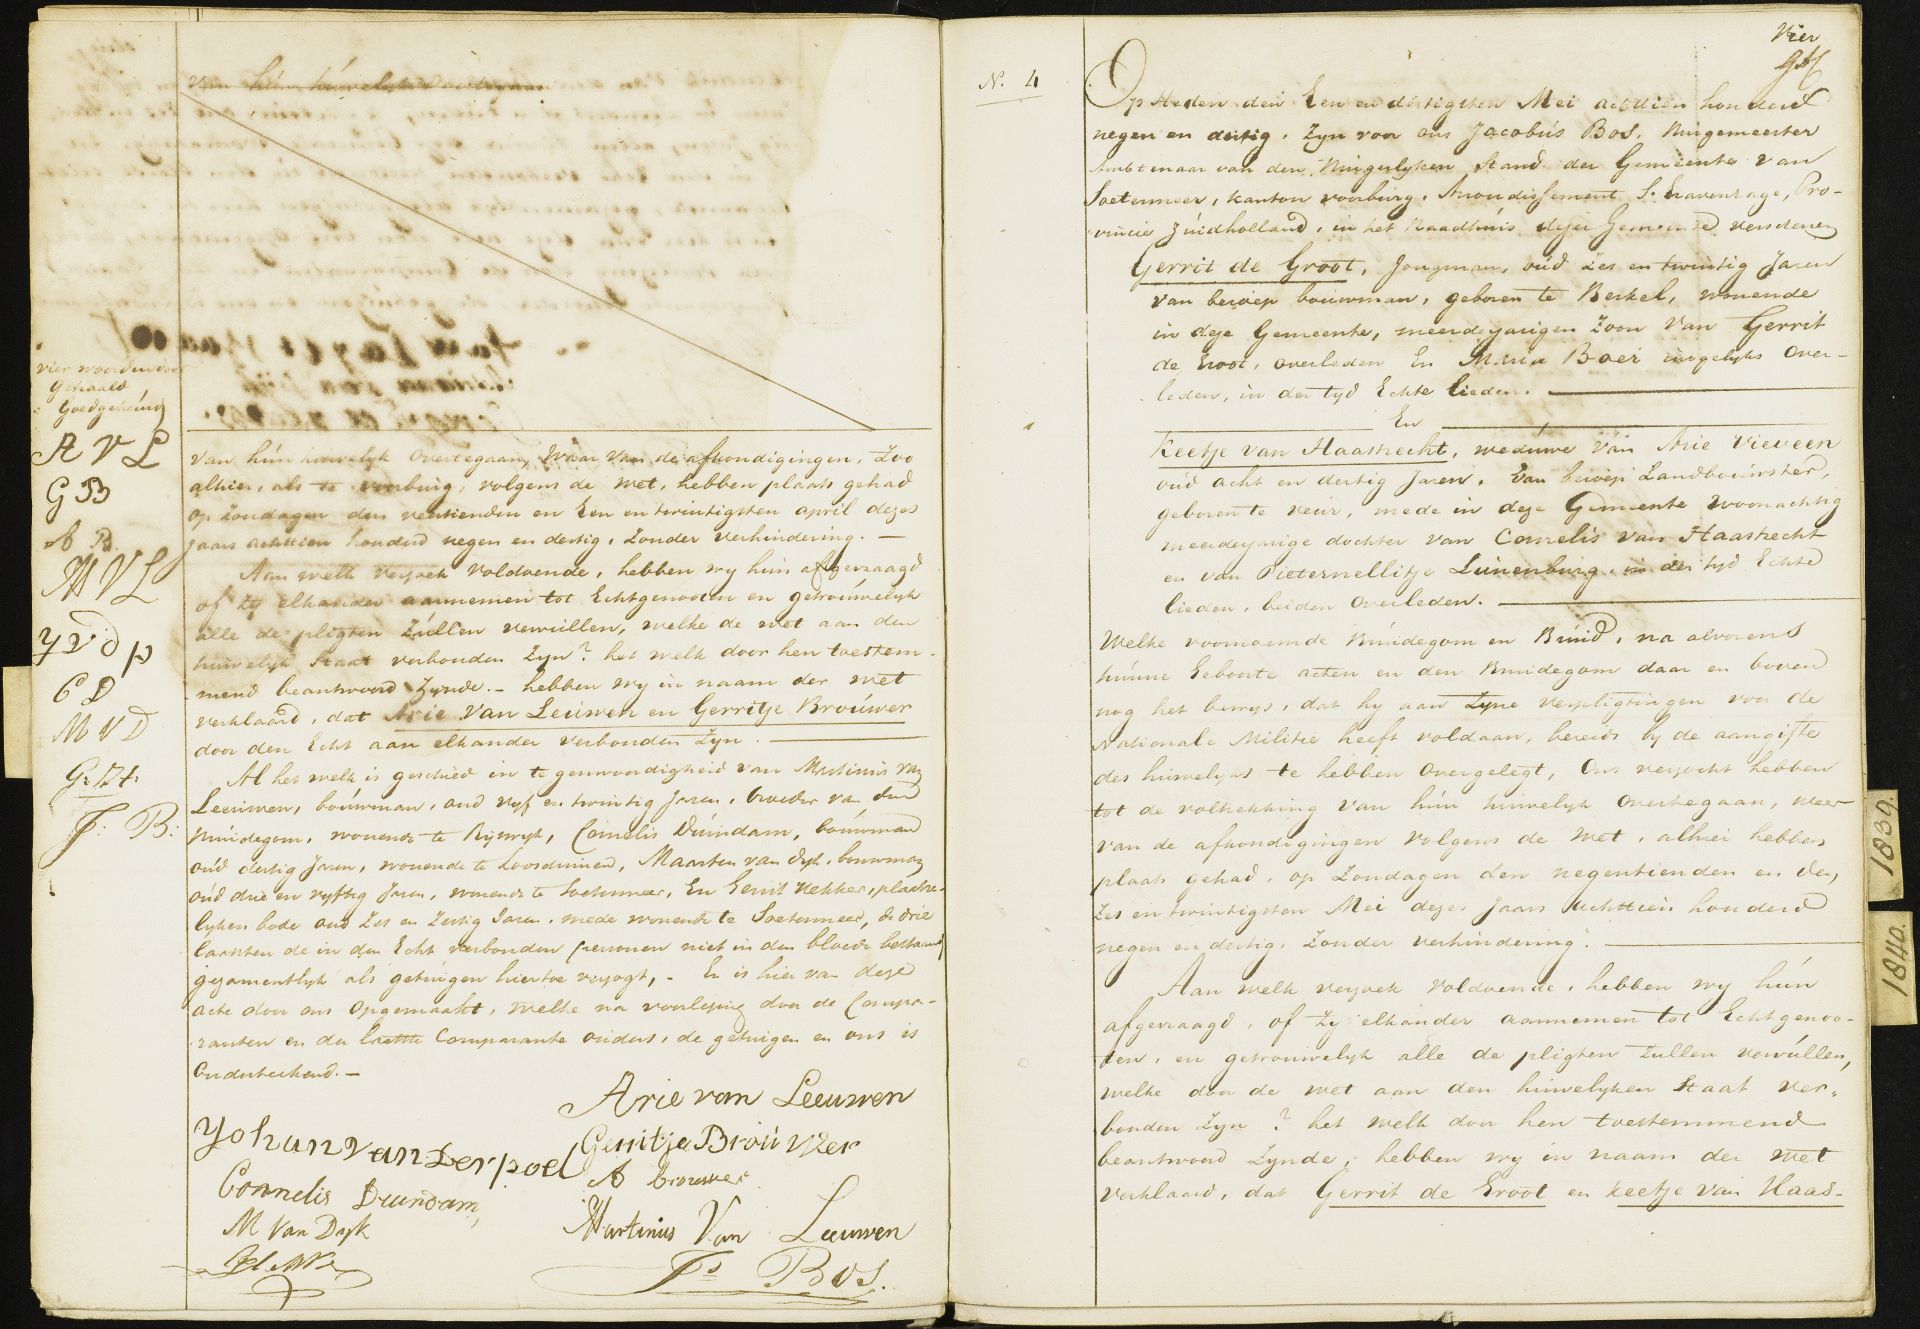 van hún húwelijk overtegaan
vier woorden door
gehaald
Goedgekeúrd
A V L
G B
A B.
M V L
J V d p
C D
M V D
G: H:
J: B:
van hún húwelyk overtegaan, waar van de afkondigingen, zoo
alhier, als te voorburg, volgens de wet, hebben plaats gehad
op zondagen den veertienden en Een en twintigsten april dezes
jaars achttien honderd negen en dertig, zonder verhindering. —
Aan welk verzoek voldoende, hebben wy hun afgevraagd
of zy elkander aannemen tot Echtgenooten en getroúwelyk
alle de pligten zúllen vervúllen, welke de wet aan den
huwelyk Staat verbonden zyn? het welk door hen toestem-
mend beantwoord zynde. – hebben wy in naam der wet
verklaard, dat Arie van Leeúwen en Gerritje Broúwer
door den Echt aan elkander verbonden zyn.
Al het welk is geschied in tegenwoordigheid van Martinús van
Leeúwen, boúwman, oud vyf en twintig Jaren, broeder van den
Brúidegom, wonende te Ryswyk, Cornelis Dúindam, boúwman
oúd dertig Jaren, wonende te Loosduinen, Maarten van Dyk, bouwman
oúd drie en vyftig Jaren, wonende te Soetermeer, En Gerrit Hekker, plaatse-
lyken bode oud zes en zestig Jaren, mede wonende te Soetermeer, de drie
laatsten de in den Echt verbonden personen niet in den bloede bestaand
gezamentlyk als getúigen hiertoe verzogt, – En is hier van deze
acte door ons opgemaakt, welke na voorlezing door de Compa-
ranten en der laatste Comparante oúders, de getuigen en ons is
Onderteekend. —
Arie van Leeuwen
Johan van der poel
Gerritje Broúwer
A brouwer
Cornelis Duindam,
M van Dyk
Martinus Van Leeuwen
G Hekker
Js Bos.
Vier
N. 4
Op Heden den Een en dertigsten Mei achttien honderd
negen en dertig, zyn voor ons Jacobús Bos, Burgemeester
Ambtenaar van den Burgerlyken Stand der Gemeente van
Soetermeer, kanton voorburg, Arrondissement S. Gravenhage, Pro-
vincie Zúidholland, in het Raadhúis dezer Gemeente verschenen
Gerrit de Groot, Jongman, oúd zes en twintig Jaren
van beroep boúwman, geboren te Berkel, wonende
in deze Gemeente, meerderjarigen zoon van Gerrit
de Groot, overleden En Maria Boer insgelyks over-
leden, in der tyd Echte lieden.
En
Keetje van Haastrecht, wedúwe van Arie Vieveen
oúd acht en dertig Jaren, van beroep Landboúwster,
geboren te veúr, mede in deze Gemeente woonachtig
meerderjarige dochter van Cornelis van Haastrecht
en van Pieternellitje Lúinenburg, in der tyd Echte
lieden, beiden overleden.
Welke voornoemde Brúidegom en Brúid, na alvorens
húnne Geboorte acten en den Bruidegom daar en boven
nog het bewys, dat hy aan zyne verpligtingen voor de
Nationale Militie heeft voldaan, bereids by de aangifte
des húwelyks te hebben overgelegt, Ons verzocht hebben
tot de voltrekking van hún húwelyk overtegaan, weer-
van de afkondigingen volgens de wet, alhier hebben
plaats gehad, op Zondagen den negentienden en den
zes en twintigsten Mei dezes Jaars achttien honderd
negen en dertig, zonder verhindering.
Aan welk verzoek voldoende, hebben wy hún
afgevraagd, of zy elkander aannemen tot Echtgenoo-
ten, en getrouwelyk alle de pligten zullen vervúllen,
welke door de wet aan den húwelyken Staat ver-
bonden zyn? het welk door hen toestemmend
beantwoord zynde, hebben wy in naam der wet
verklaard, dat Gerrit de Groot en keetje van Haas-
1839.
1840.